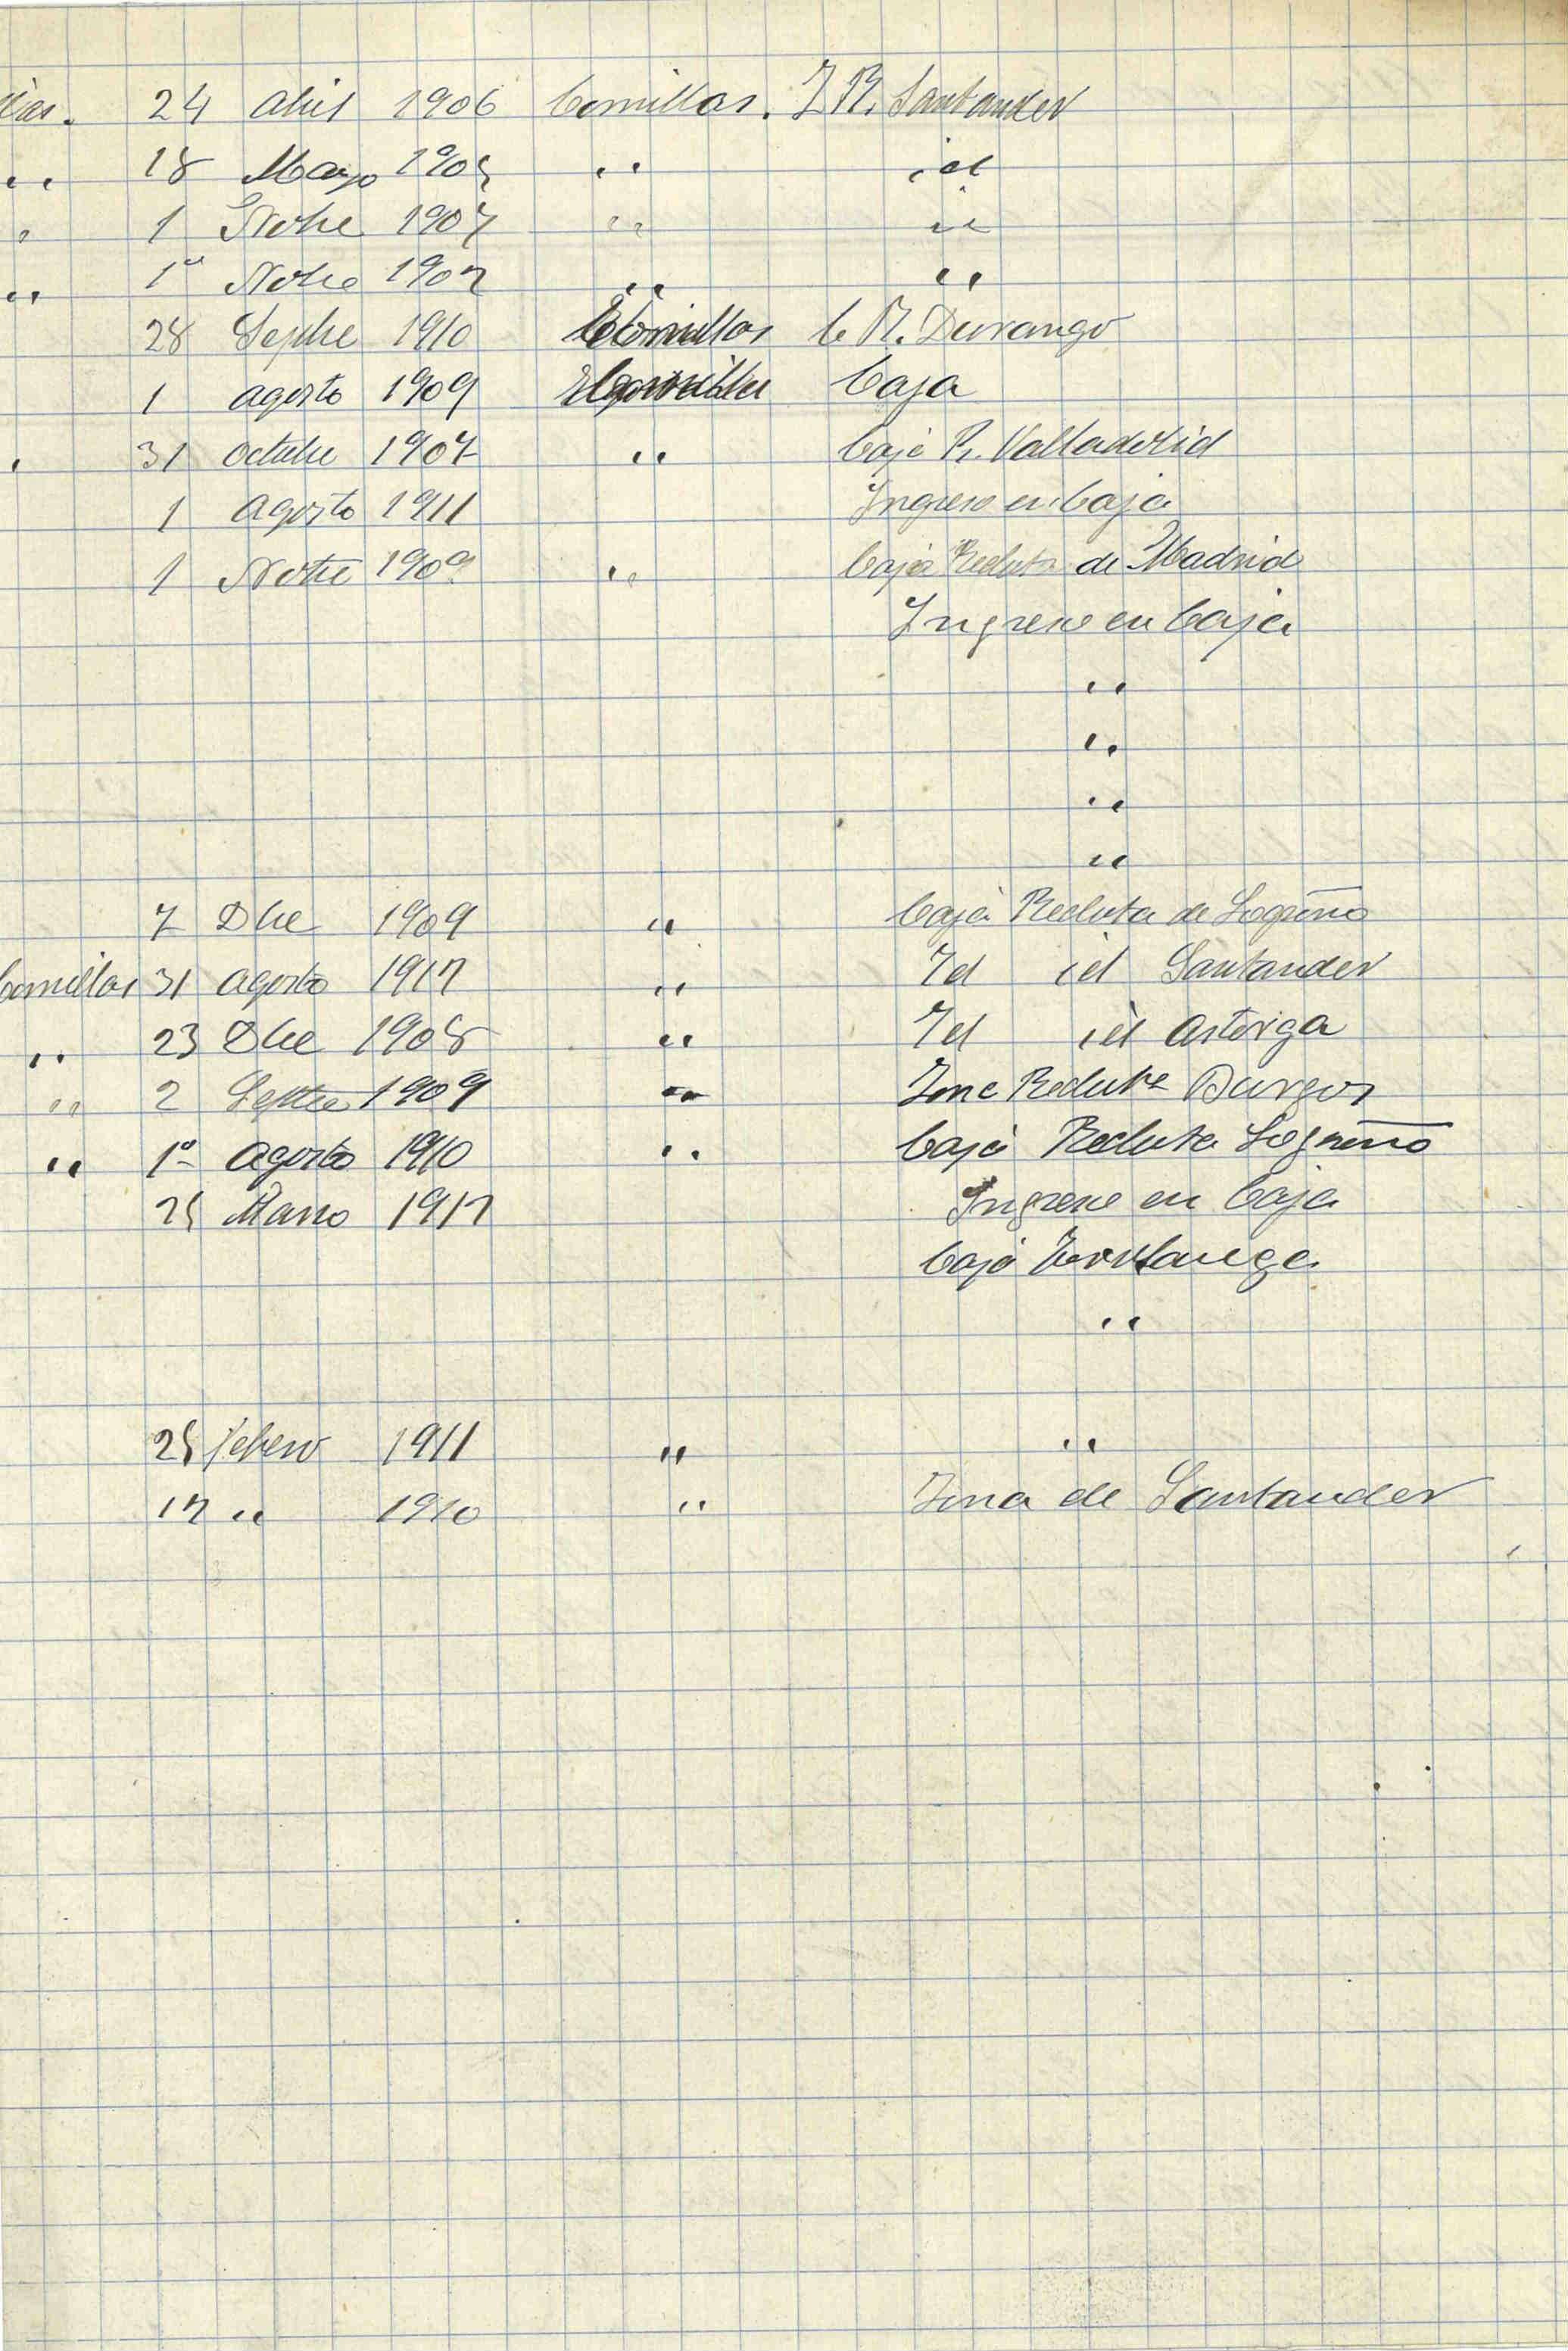 24 Abril 1906 Comillas. Z R. Santander
" 18 Mayo 1905 " id
" 1 Nobre 1907 " "
" 1º Nobre 1902 " "
28 Sepbre 1910 Comillas C R. Durango
1 agosto 1909 Caja
" 31 octubre 1907 " Caja R. Valladolid
1 agosto 1911 Ingreso en Caja
1 Nobre 1909 " Caja Recluta de Madrid
Ingreso en Caja
"
"
"
"
7 Dbre 1909 " Caja Recluta de Logroño
Comillas 31 agosto 1912 " Id id Santander
" 23 Dbre 1908 " Id id Astorga
" 2 Septbre 1909 " Zona Recluta Burgos
" 1º agosto 1910 " Caja Recluta Logroño
25 Marzo 1912 Ingreso en Caja
Caja Torrelavega
"
25 febrero 1911 " "
12 " 1910 " Zona de Santander